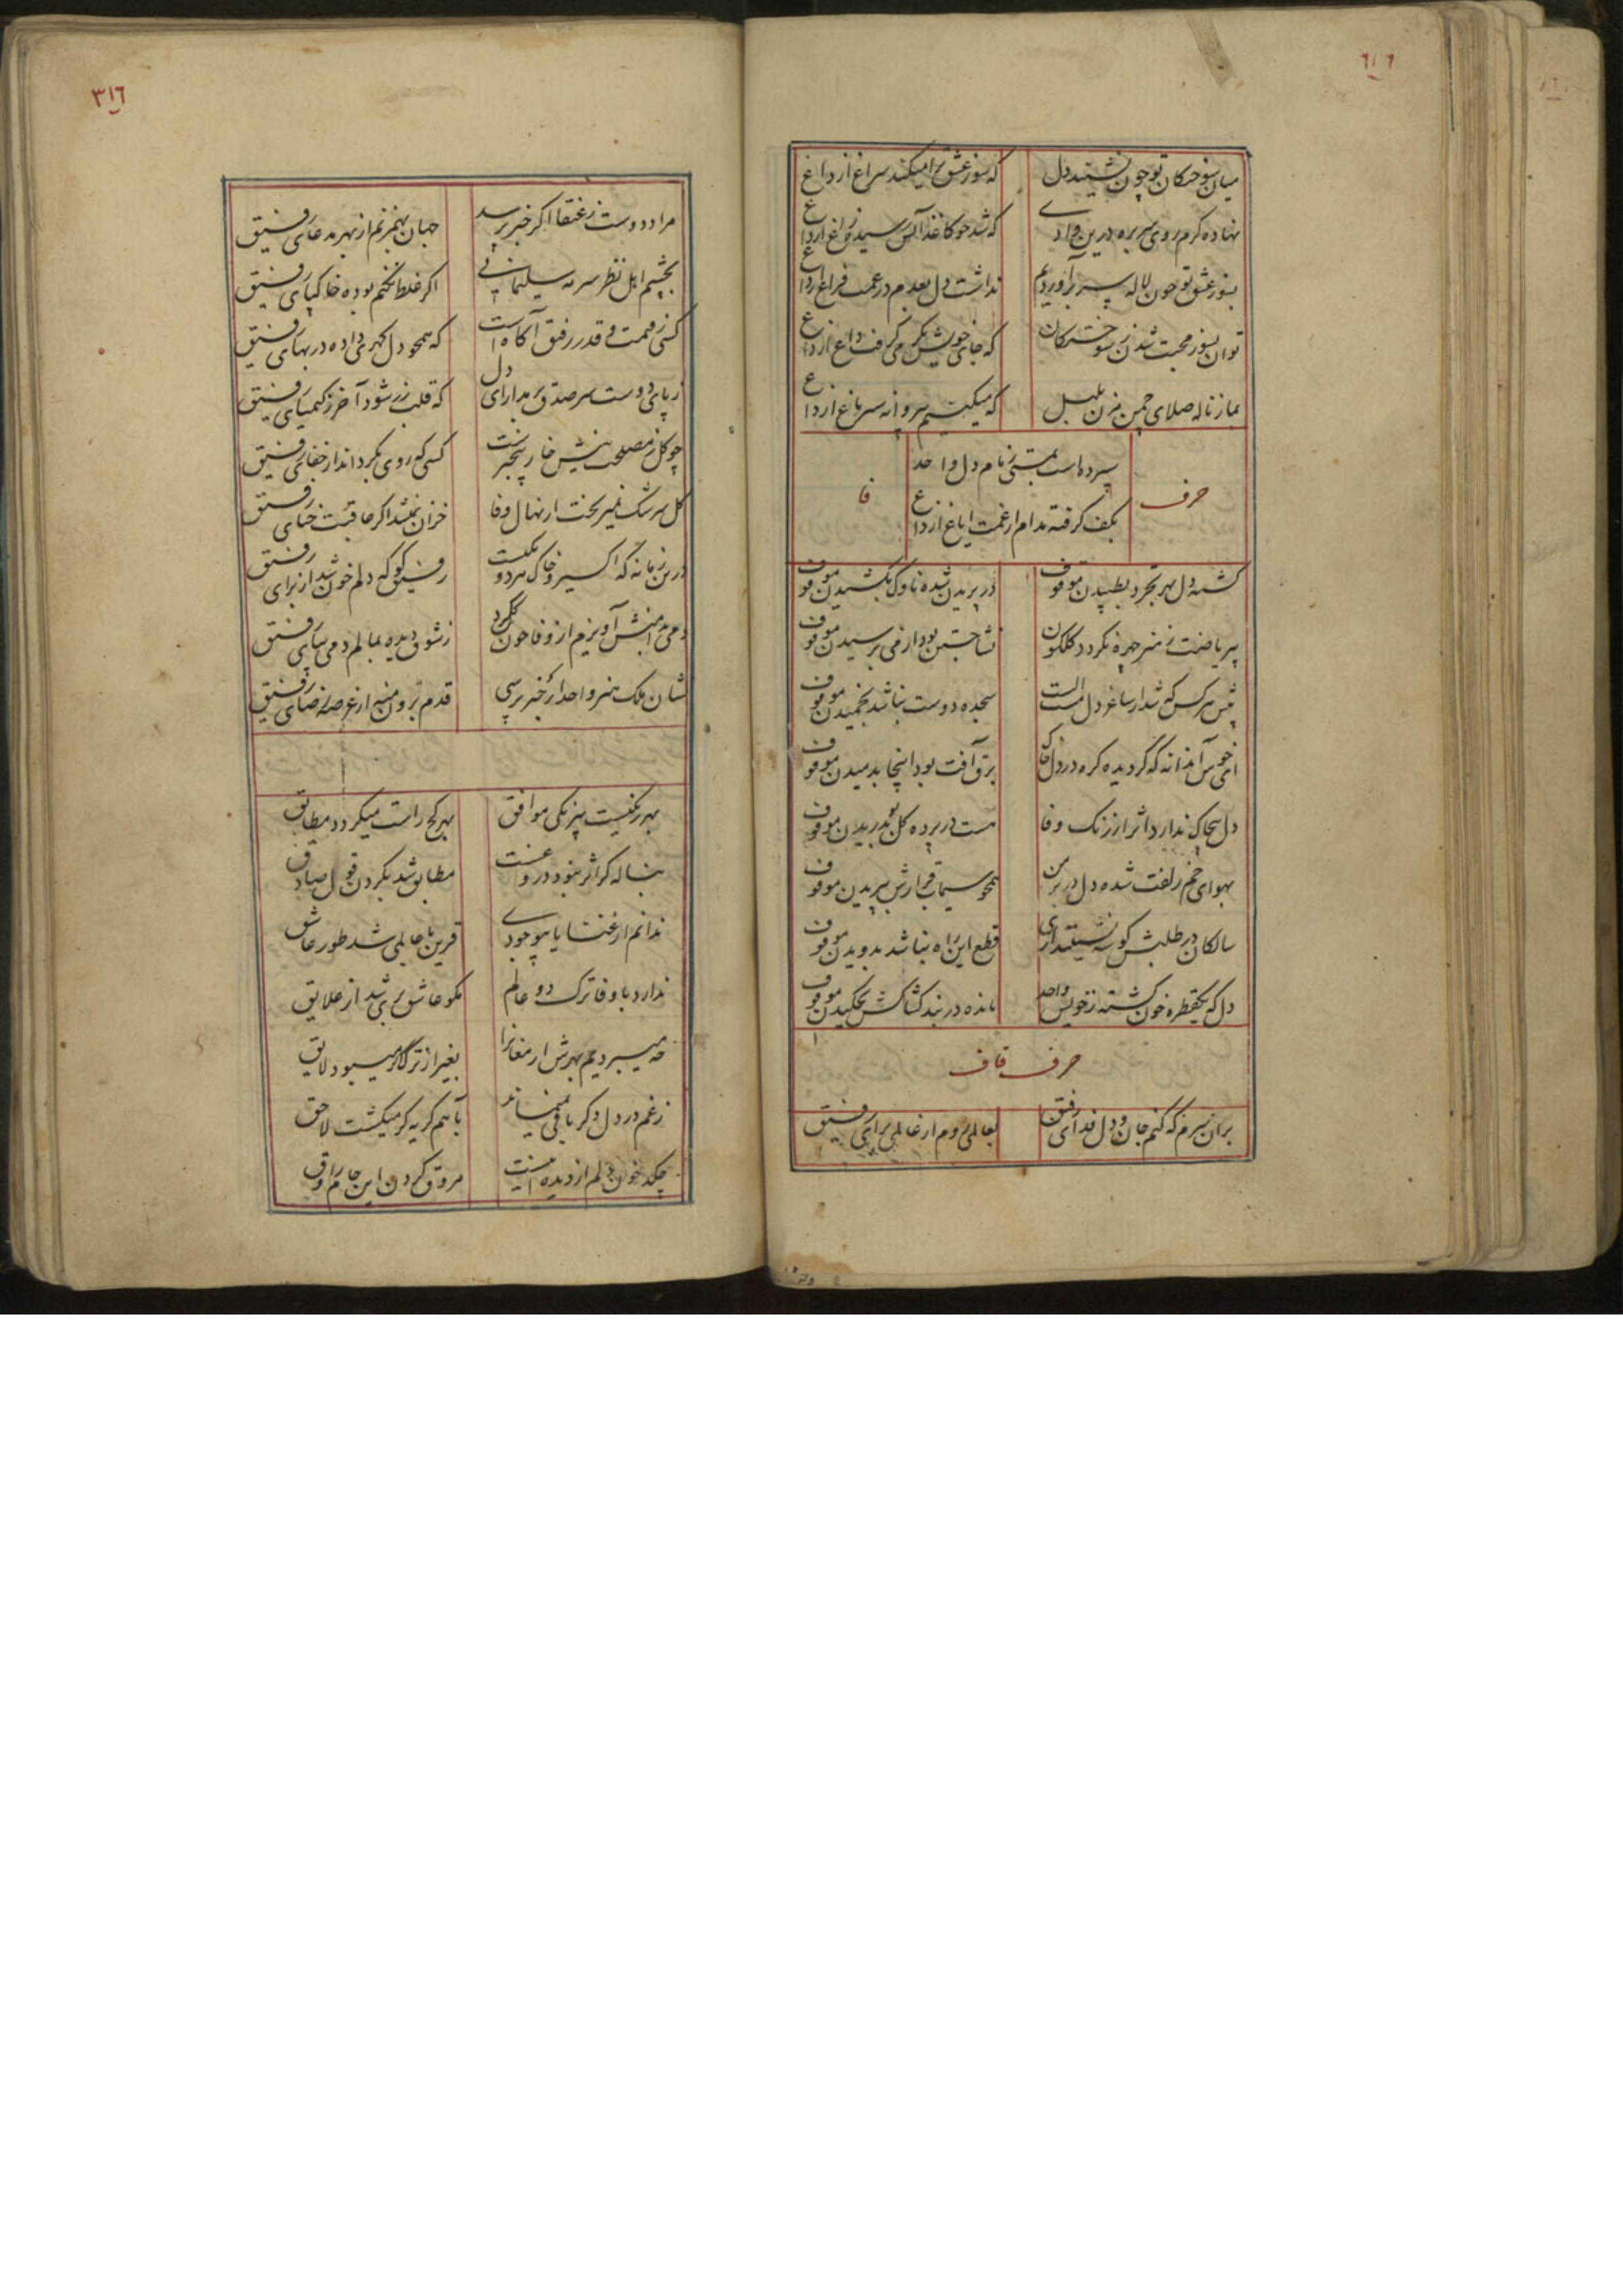 میان سوختکان تو چون نشیند دل
که سوز عشق ترا میکند سراغ از داغ
نهاده کرم روی سر بره درین وادی
که شد چو کاغذ آتش رسیده از داغ
بسوز عشق تو چون لاله سر برآوردیم
نداشت دل بعدم در غمت فراغ از داغ
توان بسوز محبت شدن ز سوختکان
که جای خویش می گرفت داغ از داغ
بما ز ناله صلای چمن مزن بلبل
که میکنیم سر و باغ از داغ
سپرده است زمام دل واحد
بکف کرفته مدام از غمت ایاغ از داغ
حرف فا
کشته دل بهر تجرد بطپیدن موقوف
در پریدن شده ناوک بکشیدن موقوف
بی ریاضت ز هنر چهره نکردد کلکون
نشا جستن بود از می برسیدن موقوف
پیش هر کس که شد از ساغر دل مست الست
سجده دوست نباشد بخمیدن موقوف
ای خوش آندانه که گردیده کره در دل خاک
برق آفت بود اینجا بدمیدن موقوف
دل بیچاک ندارد اثر از رنک وفا
هست در پرده کل بو بدریدن موقوف
بهوای خم زلفت شده دل در بر من
همچو سیماب قرارش بپریدن موقوف
سالکان در طلبش کوشه نشینند
قطع این راه نباشد بدویدن موقوف
دل که یکقطره خون کشته ز خویش واحد
مانده در بند کشاکش بچکیدن موقوف
حرف قاف
بران سرم که کنم جان و دل فدای رفیق
بعالمی روم از عالمی برای رفیق
٣١٦
مراد دوست ز عنقا اکر خبر پرسد
جهان بهم زنم از بهر مدعای رفیق
بچشم اهل نظر سرمه سلیمانی
اکر غلط نکنم بوده خاکپای رفیق
کسی ز قیمت و قدر رفیق آکاه است
که همچو دل کهری داده در بهای رفیق
ز پای دوست سر صدق بر مدار ای دل
که قلب زر شود آخر ز کیمیای رفیق
چو کل ز مصلحت بینش خار بیخبر است
کسی که روی بکرداند از جفای رفیق
کل سرشک نمیریخت از نهال وفا
خزان نمیشد اکر عاقبت حنای رفیق
درین زمانه که اکسیر و خاک هر دو یکیست
رفیق کو که دلم خون شد از برای رفیق
دمی بدامنش آویزم از وفا چون کرد
ز شوق دیده بمالم دمی بپای رفیق
نشان ملک هنر واحد ار خبر پرسی
قدم برون منه از عرصه رضای رفیق
بهر رنکیست بیرنکی موافق
بهر کج راست میکردد مطابق
بناله کر اثر نبود دروغست
مطابق شد بکردن قول صادق
ندانم از غنا یا بوجودی
قرین با عالمی شد طور عاشق
ندارد با وفا ترک دو عالم
مکو عاشق بری شد از علایق
چه میبردیم بهرش ارمغانرا
بغیر از ترک اکر میبود لایق
ز غم در دل دکر باقی نمیماند
باهم کریه کر میکشت لاحق
چکد خون دلم از دیده
مروق کردن این جام راوق